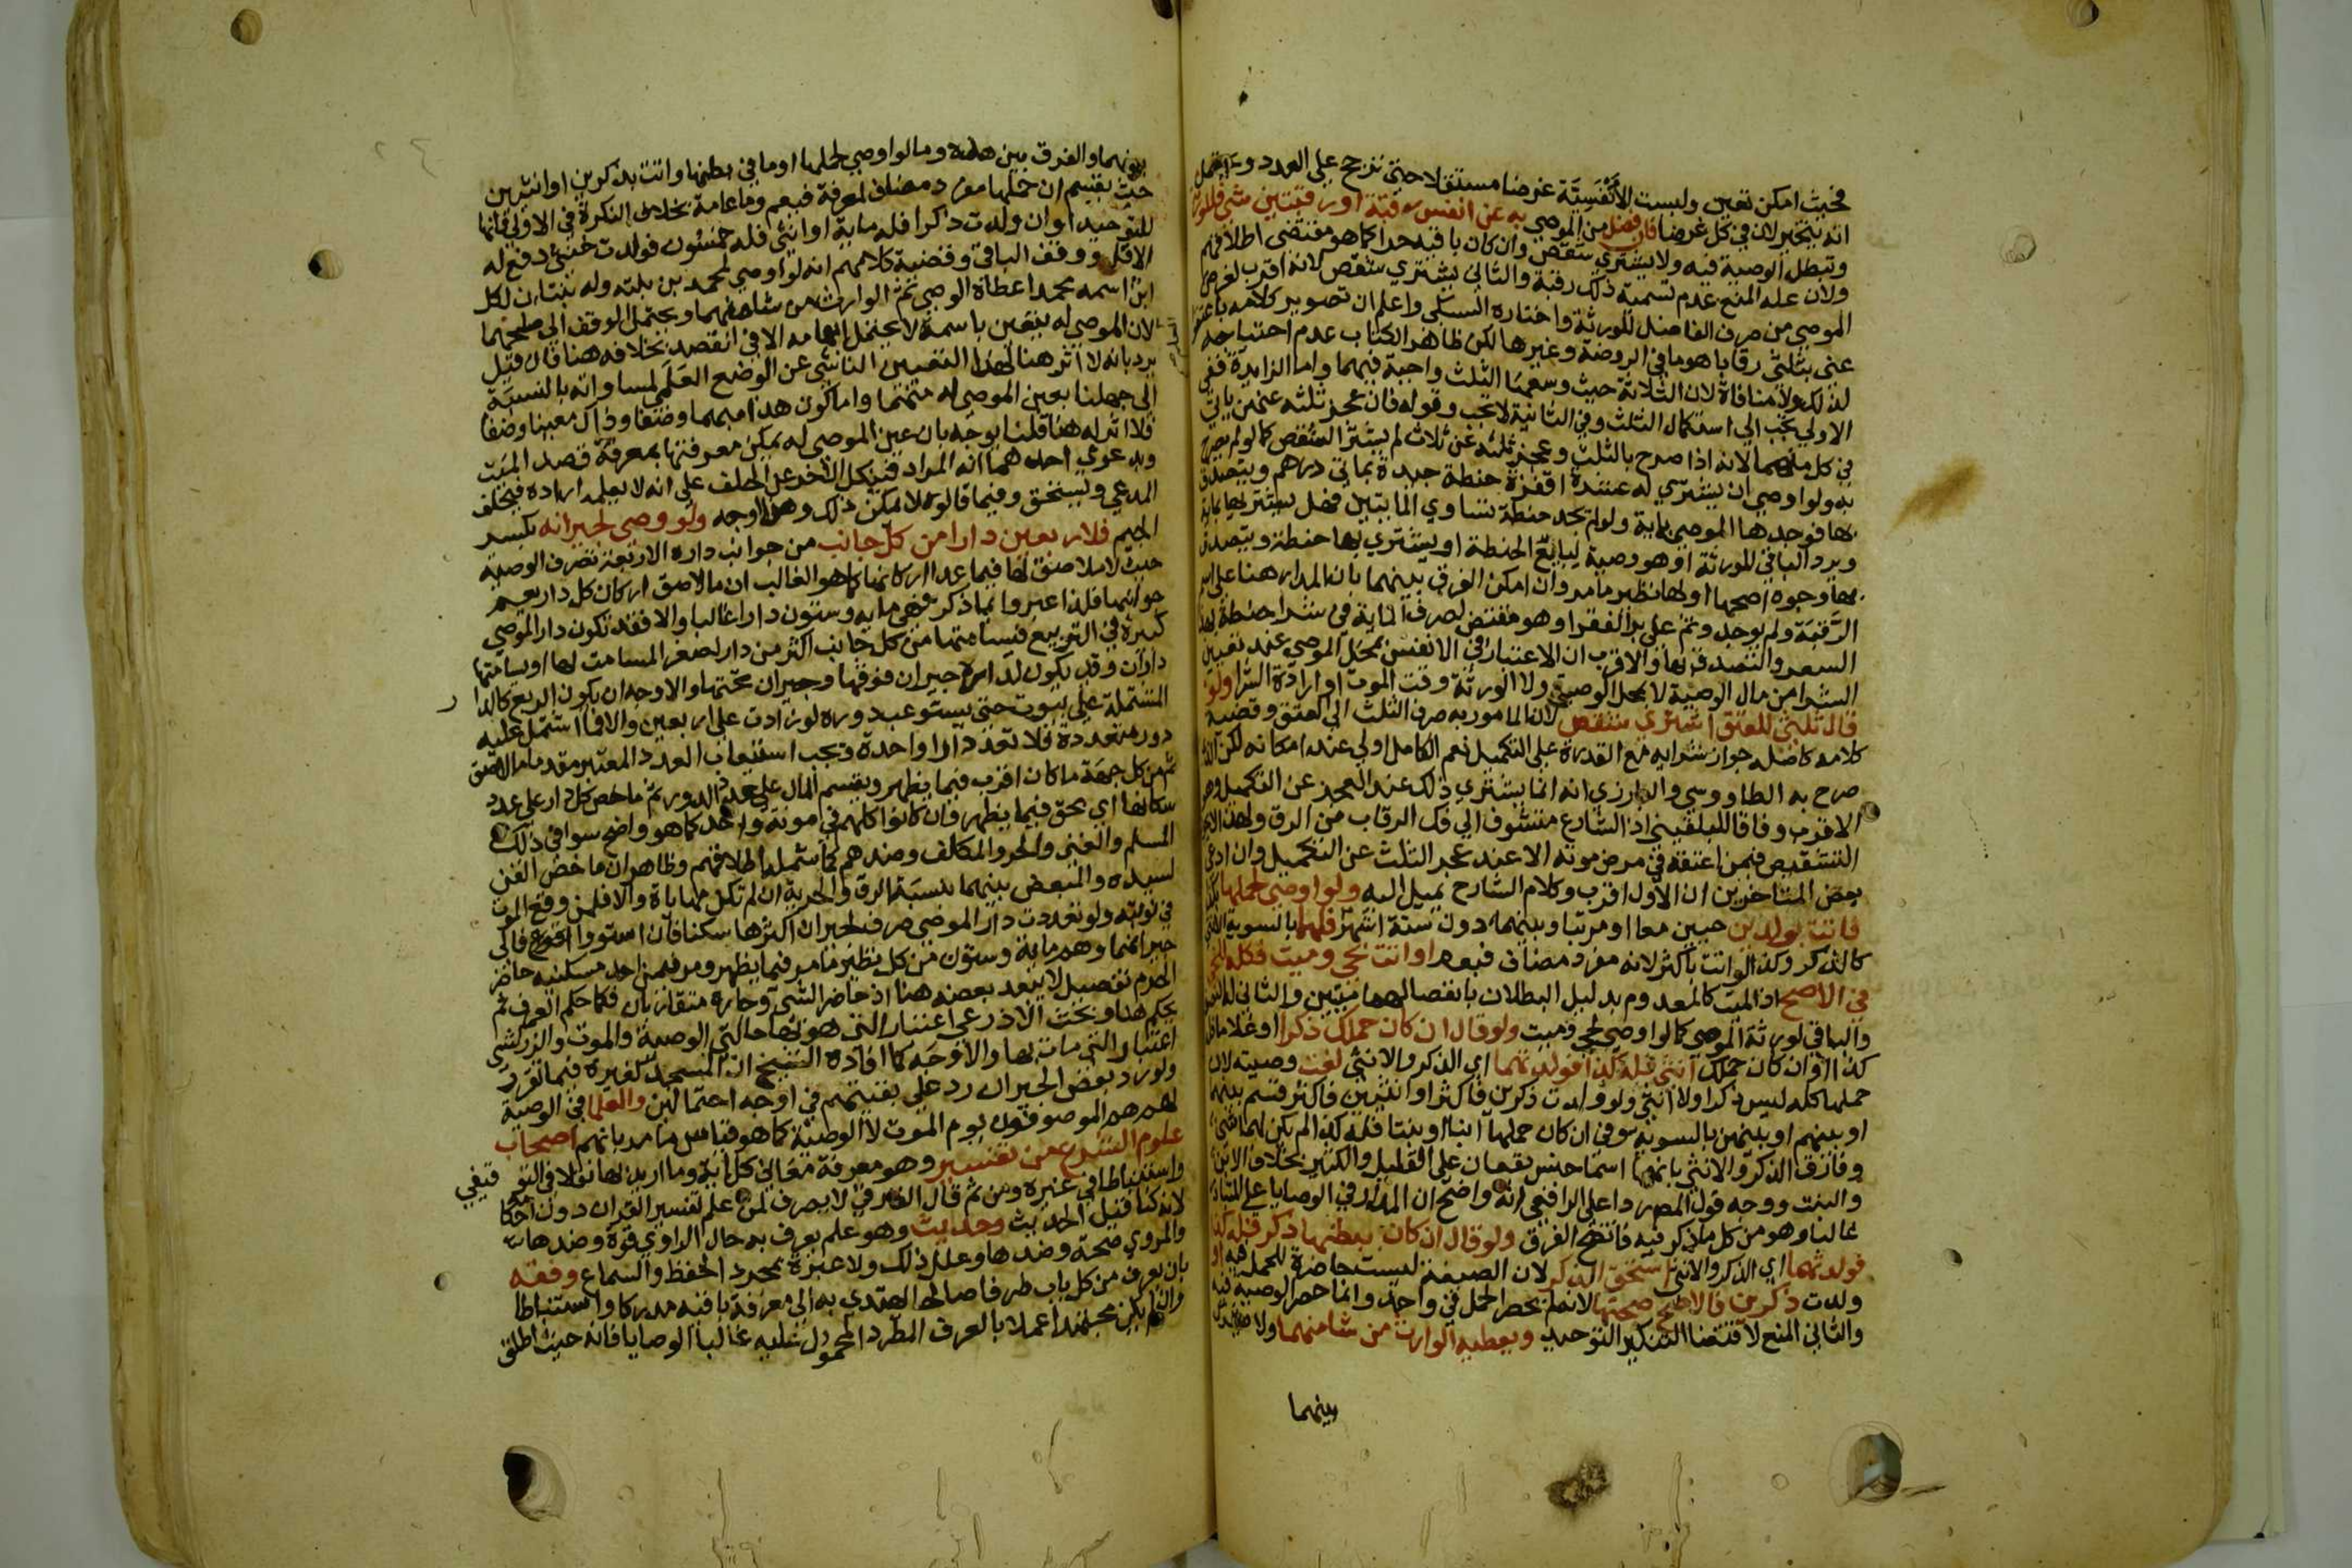 فحيث امكن تعين وليست الأنفسية غرضا مستقلا حتى ترجح على العدد
انه يتخير لان في كل غرضا فان فضل من الموصى به عن انفس رقبة او رقبتين شي فللورثة
وتبطل الوصية فيه ولا يشتري شقص وان كان باقيه حرا كما هو مقتضى اطلاقهم
ولان علة المنع عدم تسمية ذلك رقبة والثاني يشتري شقص لانه اقرب لغرض
الموصي من صرف الفاضل للورثة واختاره السبكي واعلم ان تصوير كلامه
عنى بثلثي رقابا هو ما في الروضة وغيرها لكن ظاهر الكتاب عدم احتياجه
لذلك ولا منافاة لان الثلاثة حيث وسعها الثلث واجبة فيهما واما الزايدة ففي
الاولى يجب الى استكمال الثلث وفي الثانية لا تجب وقوله فان عجز ثلثه عنهن ياتي
في كل منهما لانه اذا صرح بالثلث وعجز ثلثه عن ثلاث لم يشتر الشقص كما لو لم يصرح
به ولو اوصى ان يشترى له عشرة اقفزة حنطة جيدة بماتي درهم ويتصدق
بها فوجدها الموصي بماية ولم تجد حنطة تساوي المايتين فهل يشتريها بماية
ويرد الباقي للورثة او هو وصية لبايع الحنطة او يشتري بها حنطة ويتصدق
بها وجوه اصحها اولها نظير ما مر وان امكن الفرق بينهما بان المدار هنا على اسم
الرقبة ولم يوجد وثم على بر الفقرا وهو مقتض لصرف الماية في شرا حنطة بهذا
السعر والتصدق بها والاقرب ان الاعتبار في الانفس بمحل الموصي عند تعيين
الشرا من مال الوصية لا بمحل الوصي ولا الورثة وقت الموت او ارادة الشرا ولو
قال ثلثي للعتق اشتري شقص لان المامور به صرف الثلث الى العتق وقضية
كلامه كاصله جواز شرايه مع القدرة على التكميل نعم الكامل اولى عند امكانه لكن الذي
صرح به الطاووسي والبارزي انه انما يشتري ذلك عند العجز عن التكميل وهو
الاقرب وفاقا للبلقيني اذ الشارع متشوف الى فك الرقاب من الرق
التشقيص فيمن اعتقه في مرض موته الا عند عجز الثلث عن التكميل وان ادعى
بعض المتاخرين ان الاول اقرب وكلام الشارح يميل اليه ولو اوصى لحملها
فاتت بولدين حيين معا او مرتبا وبينهما دون ستة اشهر فلهما بالسوية الانثى
كالذكر وكذا لو اتت باكثر لانه مفرد مضاف فيعم او اتت بحي وميت فكله للحي
في الاصح اذ الميت كالمعدوم بدليل البطلان بانفصالهما ميتين والثاني
والباقي لورثة الموصي كما لو اوصى لحي وميت ولو قال ان كان حملك ذكرا او غلاما فله
كذا او ان كان حملك انثى فله كذا فولدتهما اي الذكر والانثى لغت وصيته لان
حملها كله ليس ذكرا ولا انثى ولو ولدت ذكرين فاكثر او انثيين فاكثر قسم بينهما
او بينهم او بينهن بالسوية وفي ان كان حملها ابنا او بنتا فله كذا لم يكن لهما شي
وفارق الذكر والانثى بانهما اسما جنس يقعان على القليل والكثير بخلاف الابن
والبنت ووجه قول المصنف ردا على الرافعي انه واضح ان المدار في الوصايا على المتبادر
غالبا وهو من كل ما ذكر فيه فاتضح الفرق ولو قال ان كان ببطنها ذكر فله كذا
فولدتهما اي الذكر والانثى استحق الذكر لان الصيغة ليست حاصرة للحمل فيه او
ولدت ذكرين فالاصح صحتها لانه لم يحصر الحمل في واحد وانما حصر الوصية فيه
والثاني المنع لاقتضا التنكير التوحيد ويعطيه الوارث من شا منهما ولا
بينهما
بينهما والفرق بين هذه وما لو اوصى لحملها او ما في بطنها واتت بذكرين او انثيين
حيث يقسم ان حملها مفرد مضاف لمعرفة فيعم وما عامة بخلاف النكرة في الاولى فانها
للتوحيد او ان ولدت ذكرا فله ماية او انثى فله خمسون فولدت خنثى دفع له
الاقل ووقف الباقي وقضية كلامهم انه لو اوصى لمحمد بن بنته وله بنتان لكل
ابن اسمه محمد اعطاه الوصي ثم الوارث من شا منهما ويحتمل الوقف الى صلحهما
لان الموصى له يتعين باسمه لا يحتمل ابهامه الا في القصد بخلافه هنا قال وقيل
يرد بانه لا اثر هنا لهذا التعيين الناشي عن الوضع العلمي لمساواته بالنسبة
الى جهلنا بعين الموصى له منهما واما كون هذا مبهما وضعا وذاك معينا وضعا
فلا اثر له هنا قلنا بوجه بان عين الموصى له يمكن معرفتها بمعرفة قصد الميت
وبدعوى احدهما انه المراد فينكل الاخر عن الحلف على انه لا يعلمه اراده فيحلف
المدعي ويستحق وفيما قالوه لا يمكن ذلك وهو الاوجه ولو وصى لجيرانه بكسر
الجيم فلاربعين دارا من كل جانب من جوانب داره الاربعة تصرف الوصية
حيث لا ملاصق لها فيما عدا اركانها كما هو الغالب ان ما لاصق اركان كل دار يعم
جوانبها فلذا عبروا بما ذكر فهي ماية وستون دارا غالبا والا فقد تكون دار الموصي
كبيرة في التربيع فيسامتها من كل جانب اكثر من دار لصغر المسامت لها او يسامتها
داران وقد يكون لداره جيران فوقها وجيران تحتها والاوجه ان يكون الربع كالدار
المشتملة على بيوت حتى يستوعب دوره لو زادت على اربعين والا فما اشتمل عليه
دور متعددة فلا تعد دارا واحدة ويجب استيعاب العدد المعتبر مقدما ما لاصق
ثم من كل جهة ما كان اقرب فيما يظهر ويقسم المال على عدد الدور ثم ما خص كل دار على عدد
سكانها اي بحق فيما يظهر وان كانوا كلهم في مونة واحد كما هو واضح سوا في ذلك
المسلم والغني والحر والمكلف وضدهم كما شمله اطلاقهم وظاهر ان ما خص القن
لسيده والمبعض بينهما بنسبة الرق والحرية ان لم تكن مهاياة والا فلمن وقع الموت
في نوبته ولو تعددت دار الموصي صرف لجيران اكثرها سكنا فان استووا
جيرانهما وهم ماية وستون من كل نظير ما مر فيما يظهر ومر فيمن احد مسكنيه حاضر
الحرم تفصيل لا يبعد بعضه هنا اذ حاضر الشي وجاره متقاربان فكما حكم العرف ثم
يحكم هنا وبحث الاذرعي اعتبار التي هو بها حالتي الوصية والموت والزركشي
اعتبار التي مات بها والاوجه كما افاده الشيخ ان المسجد كغيره فيما تقرر
ولو رد بعض الجيران رد على بقيتهم في اوجه احتمالين والعلما في الوصية
لهم هم الموصوفون يوم الموت لا الوصية كما هو قياس ما مر بانهم اصحاب
علوم الشرع من تفسير وهو معرفة معاني كل اية وما اريد بها نقلا في التوقيفي
واستنباطا في غيره ومن ثم قال الفارقي لا يصرف لمن علم تفسير القران دون احكامه
لانه كناقل الحديث وحديث وهو علم يعرف به حال الراوي قوة وضدها
والمروي صحة وضدها وعلل ذلك ولا عبرة بمجرد الحفظ والسماع وفقه
بان يعرف من كل باب طرفا صالحا يهتدي به الى معرفة باقيه مدركا واستنباطا
وان لم يكن مجتهدا عملا بالعرف المطرد المحمول عليه غالبا الوصايا فانه حيث اطلق